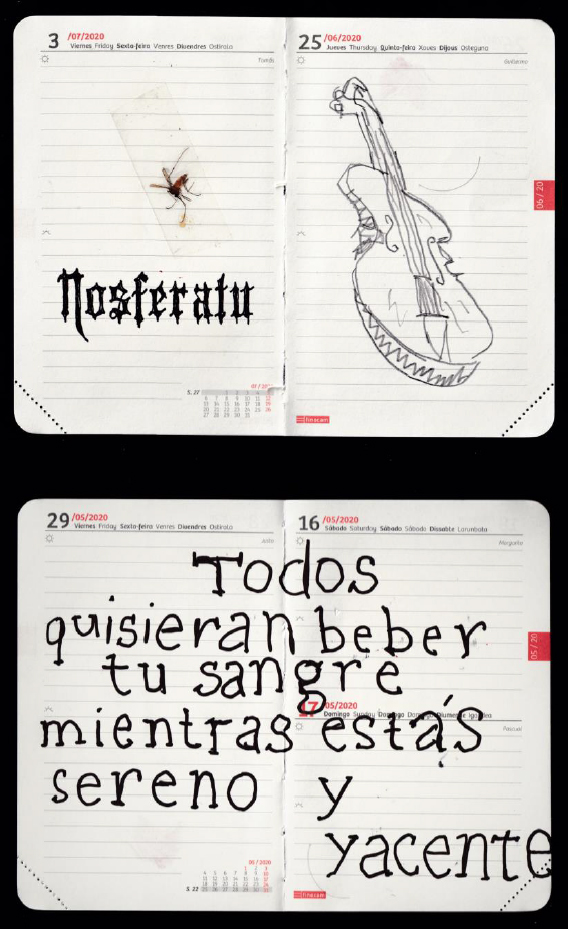 3 /07/2020
Viernes Friday Sexta-feira Venres Divendres Ostirala
Tomás
25 /06/2020
Jueves Thursday Quinta-feira Xoves Dijous Osteguna
Guillermo
06 / 20
Nosferatu
S. 27
finocam
29 /05/2020
Viernes Friday Sexta-feira Venres Divendres Ostirala
16 /05/2020
Sábado Saturday Sábado Sábado Dissabte Larunbata
Margarita
05 / 20
Todos
quisieran beber
tu sangre
17 /05/2020
Domingo Sunday Domingo Domingo Diumenge Igandea
Pascual
mientras estás
sereno y
yacente
05 / 2020
S. 22
finocam